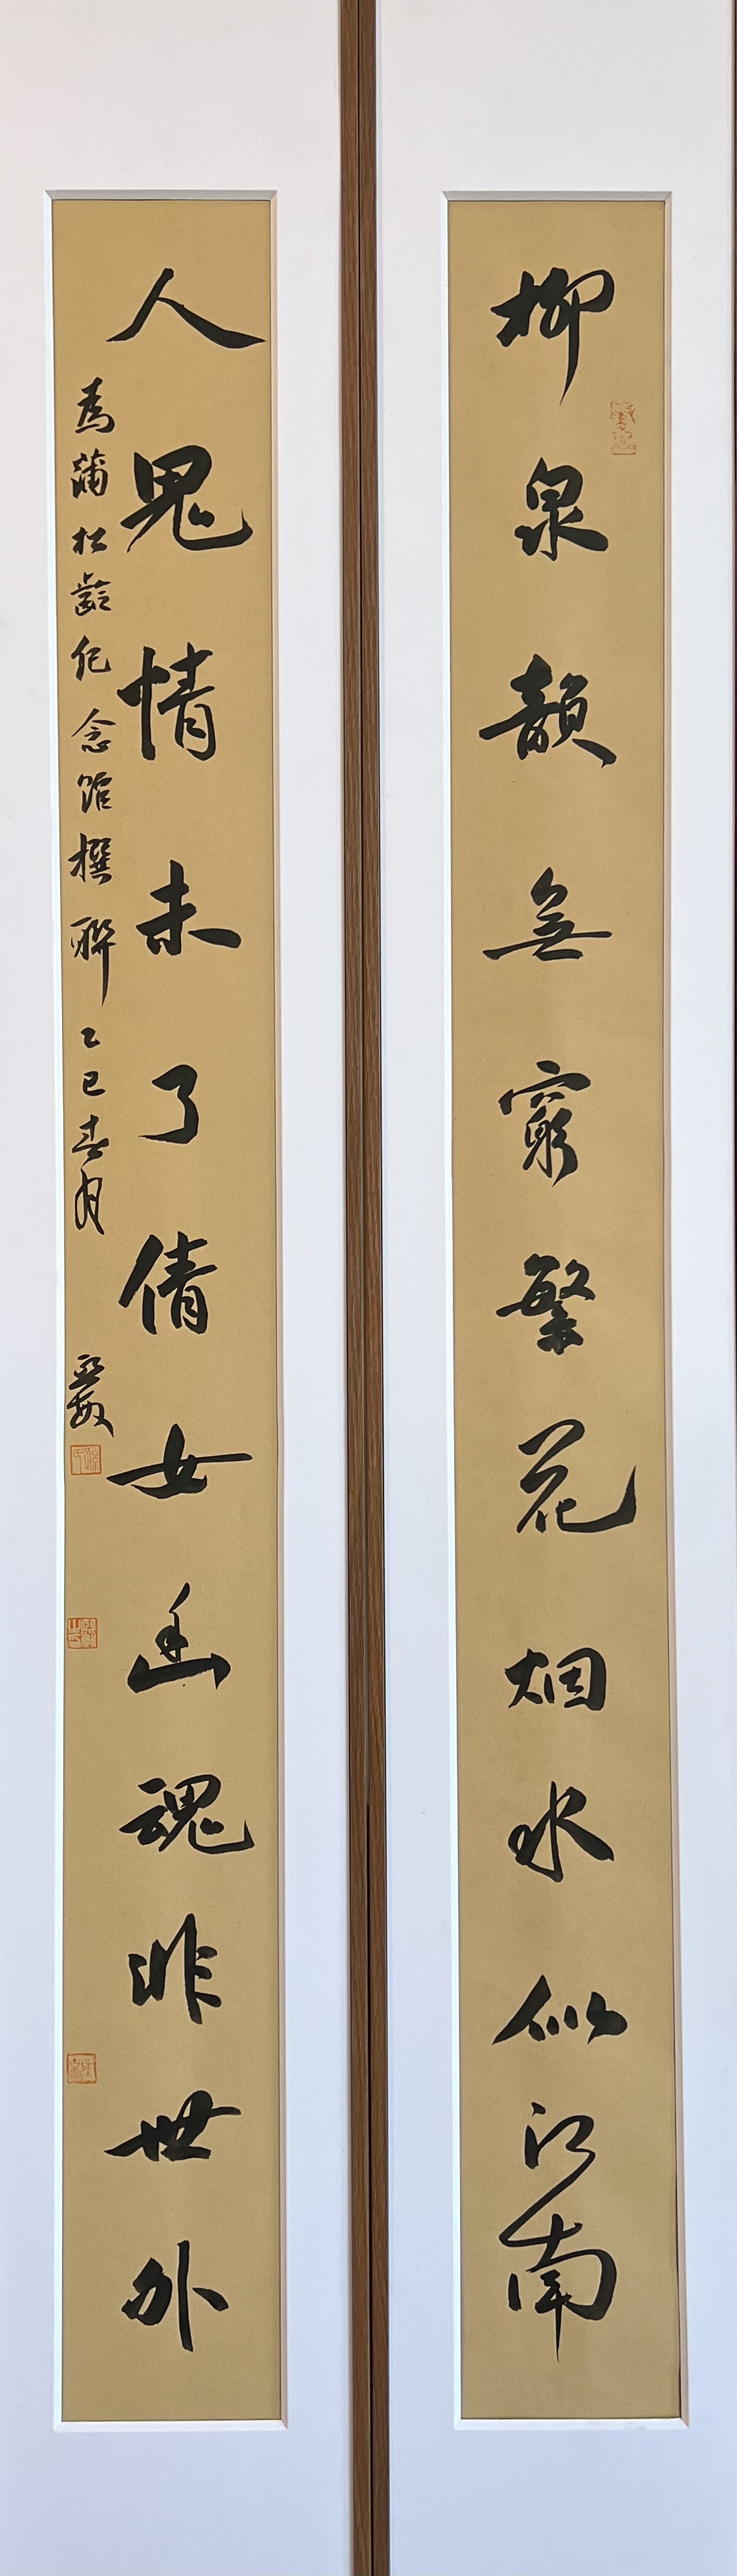 柳泉韻無窮繁花烟水似江南
人鬼情未了倩女幽魂非世外
為蒲松齡纪念馆撰聯乙巳春月